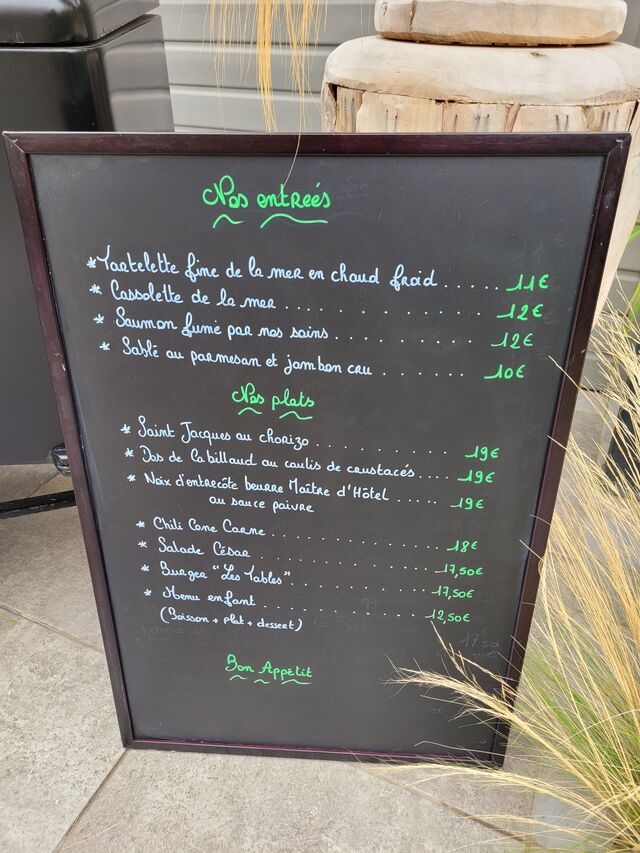 Nos entreés
* Tartelette fine de la mer en chaud froid ...... 11€
* Cassolette de la mer ........ 12€
* Saumon fumé par nos soins ........ 12€
* Sablé au parmesan et jambon cru ...... 10€
Nos plats
* Saint Jacques au chorizo ........ 19€
* Dos de Cabillaud au coulis de crustacés .... 19€
* Noix d'entrecôte beurre Maître d'Hôtel ..... 19€
ou sauce poivre
* Chili Cone Carne ........ 18€
* Salade César ........ 17,50€
* Burger "Les Tables" ........ 17,50€
* Menu enfant ........ 12,50€
(Boisson + plat + dessert)
Bon Appetit